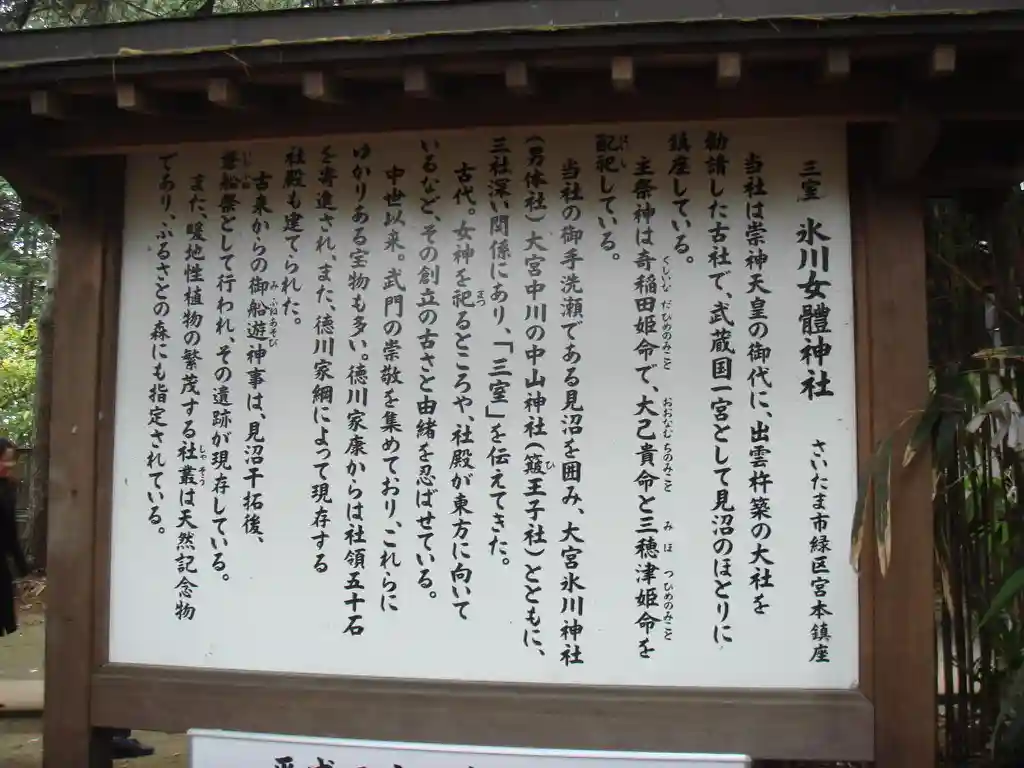 三室 氷川女體神社 さいたま市緑区宮本鎮座
当社は崇神天皇の御代に、出雲杵築の大社を
勧請した古社で、武蔵国一宮として見沼のほとりに
鎮座している。
主祭神は奇稲田姫命で、大己貴命と三穂津姫命を
くしいなだひめのみこと おおなむちのみこと みほつひめのみこと
配祀している。
はいし
当社の御手洗瀬である見沼を囲み、大宮氷川神社
(男体社)大宮中川の中山神社(簸王子社)とともに、
ひ
三社深い関係にあり、「三室」を伝えてきた。
古代。女神を祀るところや、社殿が東方に向いて
まつ
いるなど、その創立の古さと由緒を忍ばせている。
中世以来。武門の崇敬を集めており、これらに
ゆかりある宝物も多い。徳川家康からは社領五十石
を寄進され、また、徳川家綱によって現存する
社殿も建てられた。
古来からの御船遊神事は、見沼干拓後、
みふねあそび
磐船祭として行われ、その遺跡が現存している。
また、暖地性植物の繁茂する社叢は天然記念物
しゃそう
であり、ふるさとの森にも指定されている。